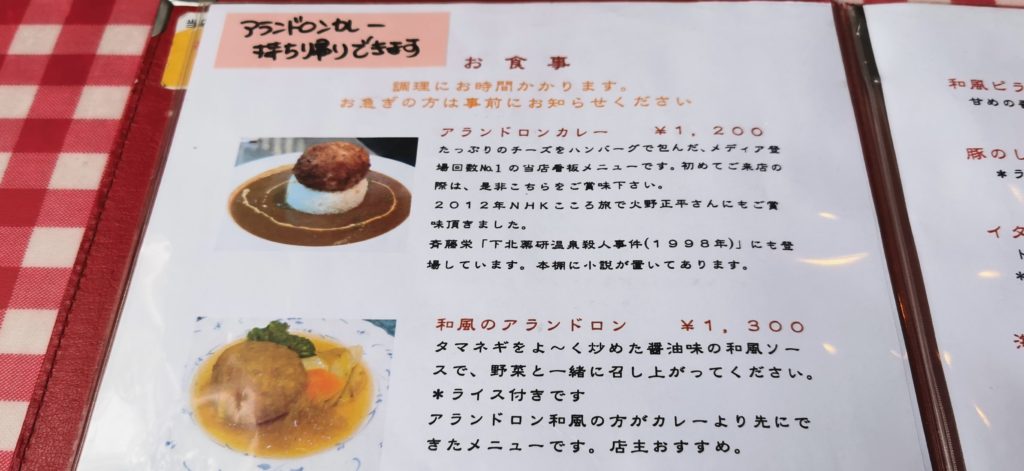 アランドロンカレー
持ち帰りできます
お食事
調理にお時間かかります。
お急ぎの方は事前にお知らせください
アランドロンカレー ￥１，２００
たっぷりのチーズをハンバーグで包んだ、メディア登
場回数№１の当店看板メニューです。初めてご来店の
際は、是非こちらをご賞味下さい。
２０１２年ＮＨＫこころ旅で火野正平さんにもご賞
味頂きました。
斉藤栄「下北薬研温泉殺人事件(１９９８年)」にも登
場しています。本棚に小説が置いてあります。
和風のアランドロン ￥１，３００
タマネギをよ～く炒めた醤油味の和風ソー
スで、野菜と一緒に召し上がってください。
＊ライス付きです
アランドロン和風の方がカレーより先にで
きたメニューです。店主おすすめ。
和風ピラ
甘めの
豚のし
イタ